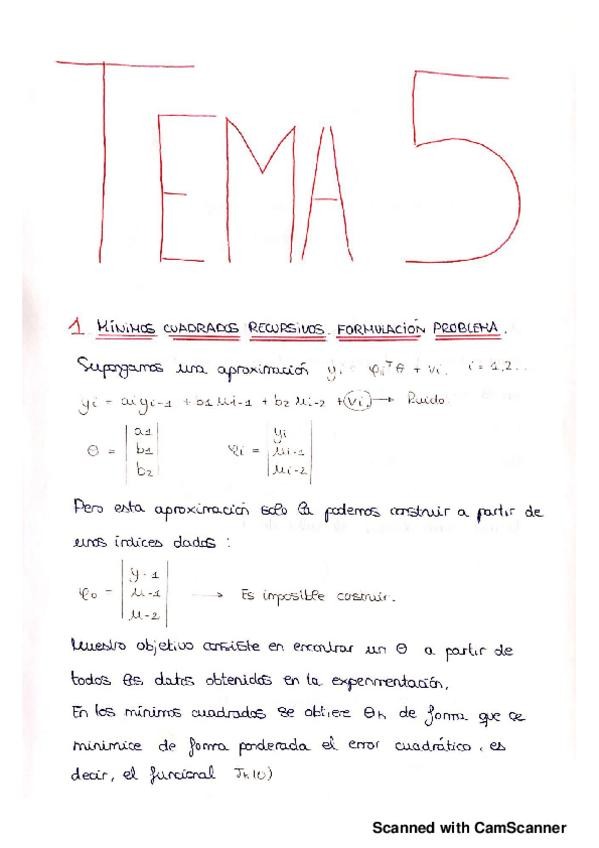 TEMA 5
1 MÍNIMOS CUADRADOS RECURSIVOS. FORMULACIÓN PROBLEMA.
Supongamos una aproximación yi = φiᵀθ + vi. i = 1,2...
yi = aiyi-1 + b1ui-1 + b2ui-2 + vi → Ruido.
θ = |a1 b1 b2| φi = |yi ui-1 ui-2|
Pero esta aproximación solo la podemos construir a partir de
unos índices dados :
φ0 = |y-1 u-1 u-2| → Es imposible costruir.
Nuestro objetivo consiste en encontrar un θ a partir de
todos los datos obtenidos en la experimentación.
En los mínimos cuadrados se obtiene θn de forma que se
minimice de forma ponderada el error cuadrático, es
decir, el funcional
Scanned with CamScanner